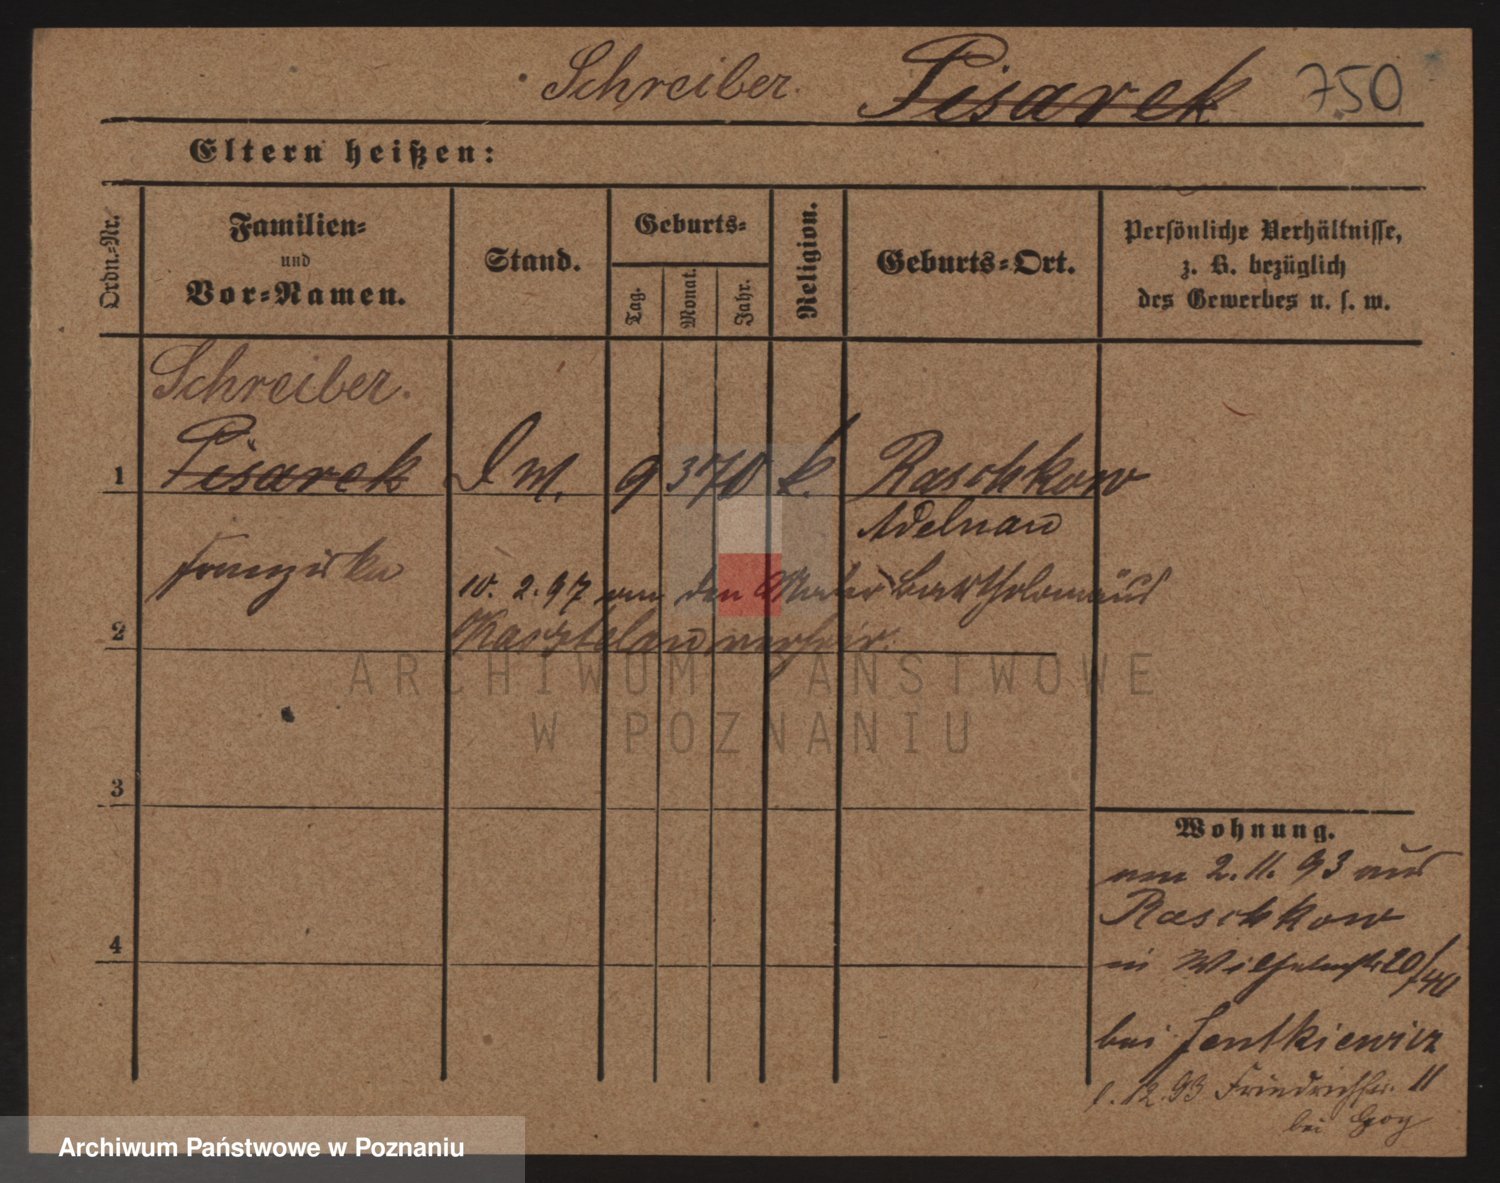 Schreiber. Pisarek 750
Eltern heißen:
Ordn.-Nr.
Familien-
und
Vor-Namen.
Stand.
Geburts-
Tag.
Monat.
Jahr.
Religion.
Geburts-Ort.
Persönliche Verhältnisse,
z. B. bezüglich
des Gewerbes u. s. w.
Schreiber.
1 Pisarek D M. 9 3 70 k. Raschkow
Adelnau
Franziska
10. 2. 97 an den Maler Bartholomäus
2 Kasztelan verheir.
ARCHIWUM PAŃSTWOWE
W POZNANIU
3
Wohnung.
2. 11. 93 aus
Raschkow
4
in Wilhelmstr 20/40
bei Jentkiewicz
1. 12. 93 Friedrichstr. 11
bei
Archiwum Państwowe w Poznaniu